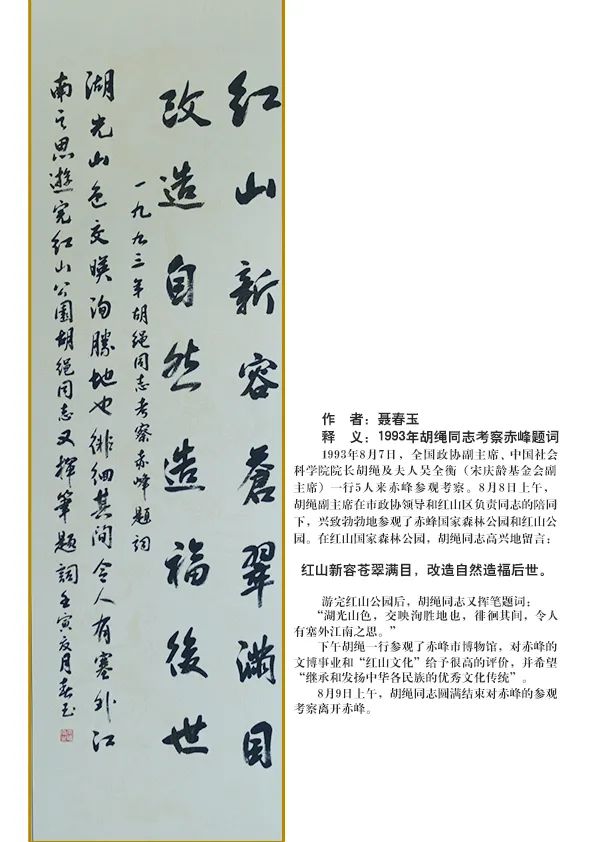 红山新容蒼翠满目
改造自然造福後世
一九九三年胡绳同志考察赤峰题词
湖光山色交暎洵勝地也徘徊其间令人有塞外江
南之思遊完红山公園胡绳同志又揮筆題詞壬寅夏月春玉
作　者：聂春玉
释　义：1993年胡绳同志考察赤峰题词
1993年8月7日，全国政协副主席、中国社会
科学院院长胡绳及夫人吴全衡（宋庆龄基金会副
主席）一行5人来赤峰参观考察。8月8日上午，
胡绳副主席在市政协领导和红山区负责同志的陪同
下，兴致勃勃地参观了赤峰国家森林公园和红山公
园。在红山国家森林公园，胡绳同志高兴地留言：
红山新容苍翠满目，改造自然造福后世。
游完红山公园后，胡绳同志又挥笔题词：
“湖光山色，交映洵胜地也，徘徊其间，令人
有塞外江南之思。”
下午胡绳一行参观了赤峰市博物馆，对赤峰的
文博事业和“红山文化”给予很高的评价，并希望
“继承和发扬中华各民族的优秀文化传统”。
8月9日上午，胡绳同志圆满结束对赤峰的参观
考察离开赤峰。